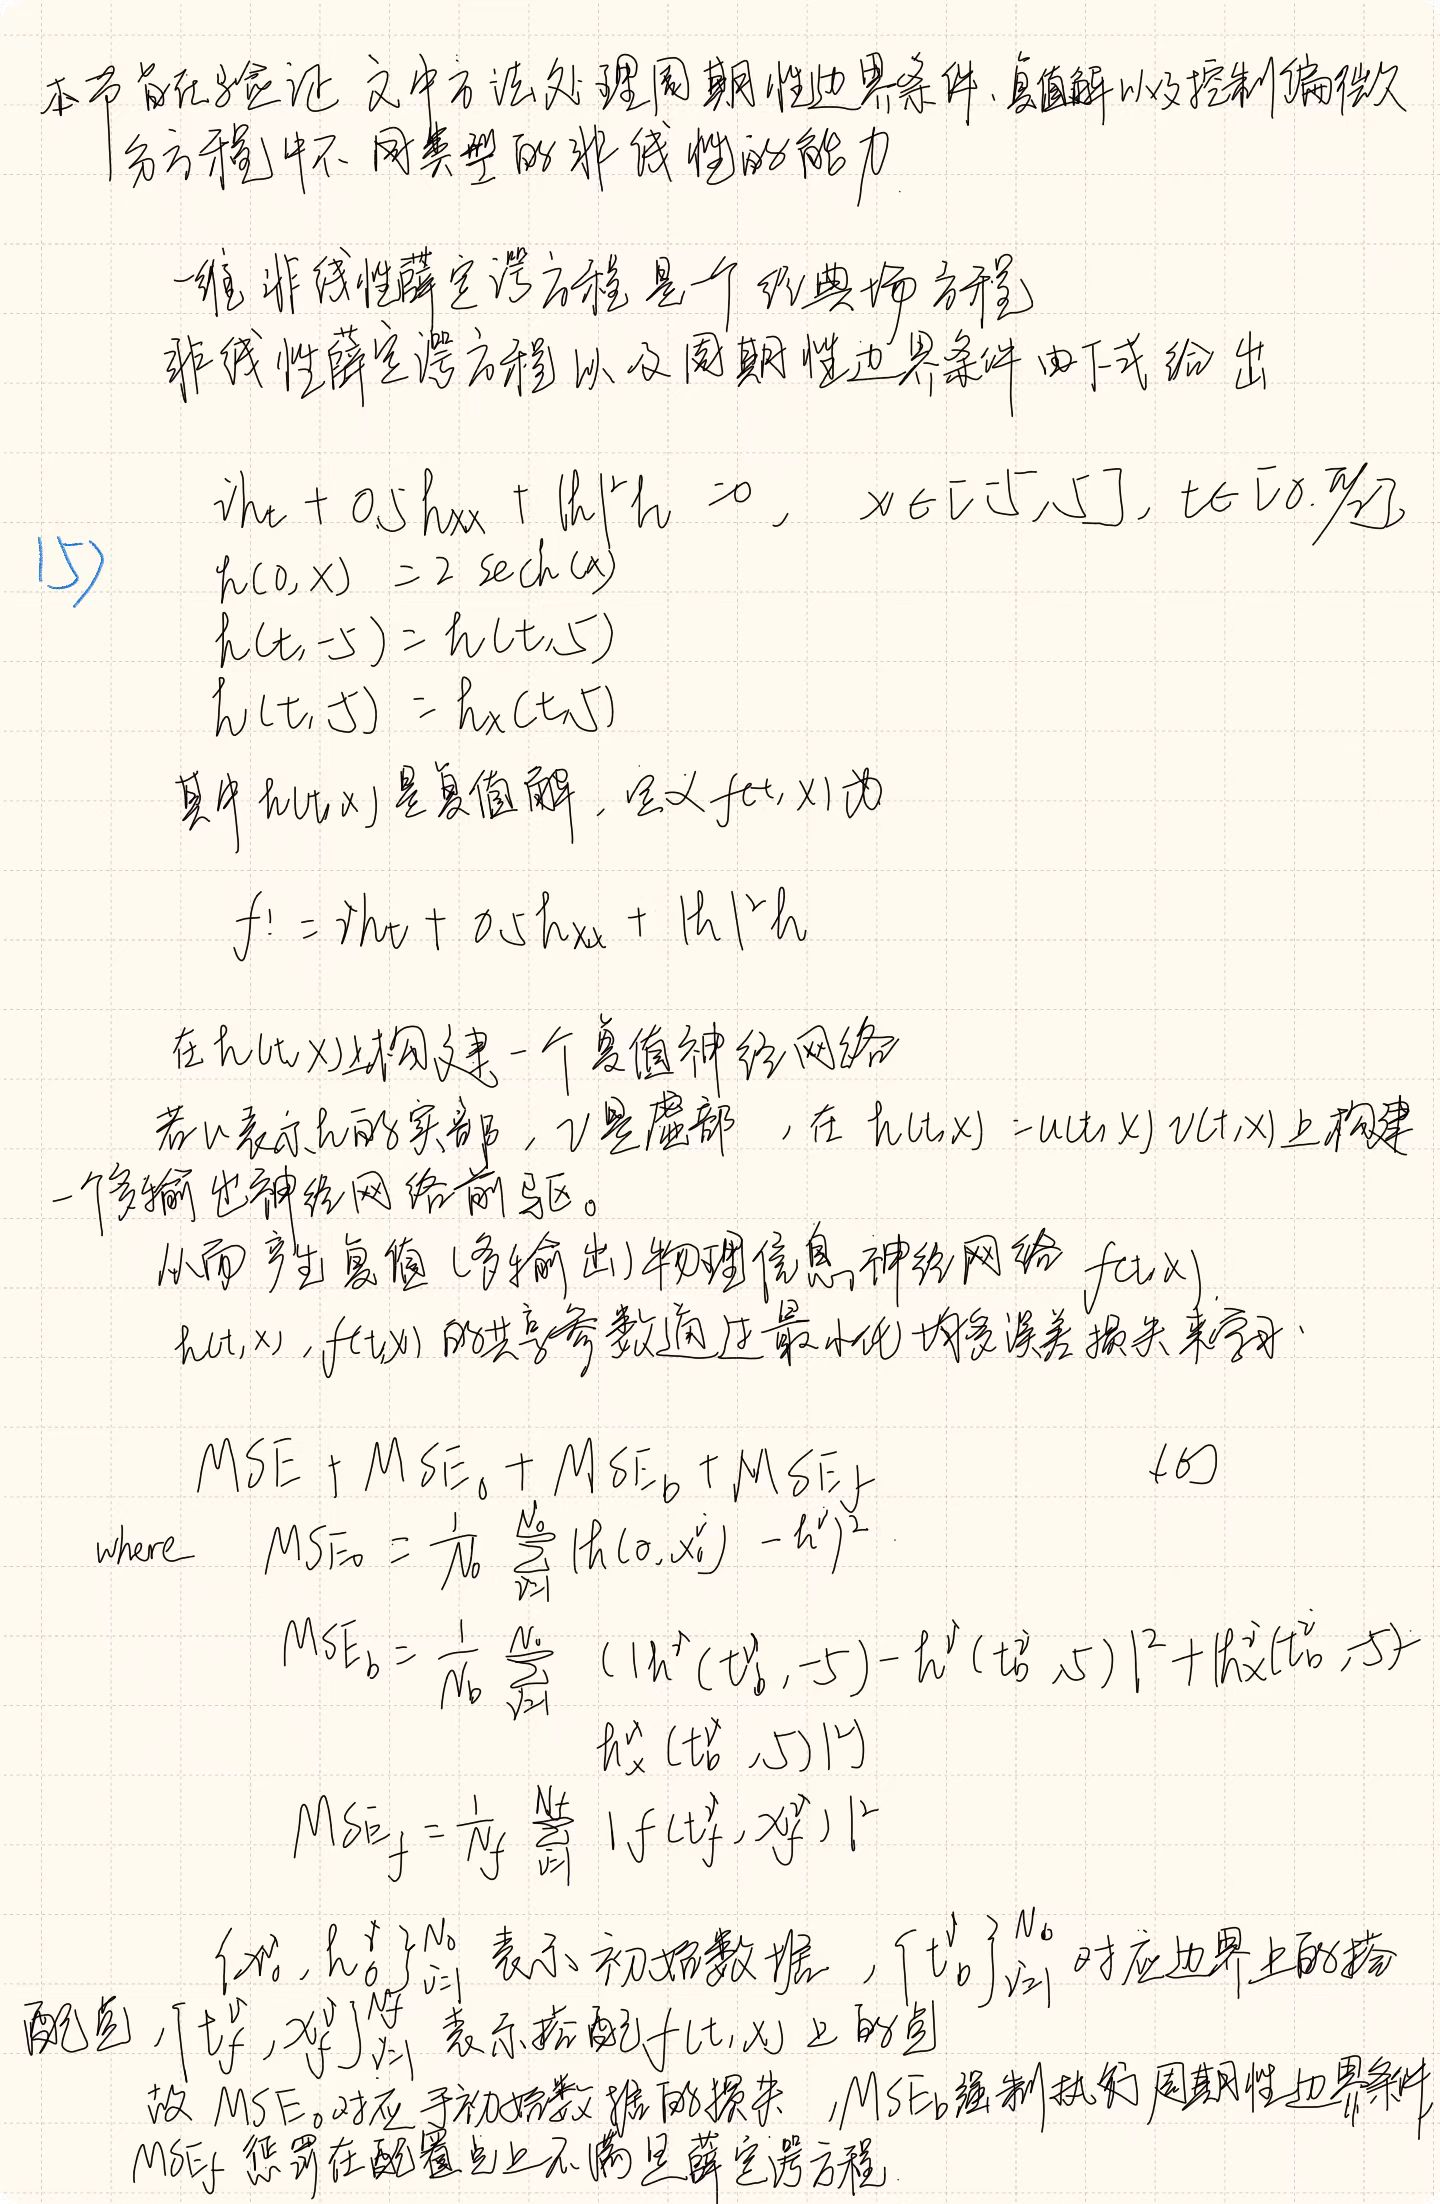 本节旨在验证 文中方法处理周期性边界条件、复值解以及控制偏微欠
分方程中不同类型的非线性的能力
一维非线性薛定谔方程是个经典场方程
非线性薛定谔方程以及周期性边界条件由下式给出
iht + 0.5hxx + |h|²h = 0, x∈[-5,5], t∈[0.π/2],
(5)
h(0,x) = 2 sech(x)
h(t,-5) = h(t,5)
h(t,-5) = hx(t,5)
其中h(t,x)是复值解,定义f(t,x)为
f: = iht + 0.5hxx + |h|²h
在h(t,x)上构建一个复值神经网络
若u表示h的实部,v是虚部,在h(t,x) = u(t,x) v(t,x)上构建
一个多输出神经网络前驱。
从而产生复值(多输出)物理信息神经网络 f(t,x).
h(t,x),f(t,x)的共享参数通过最小化均方误差损失来学习.
MSE + MSE₀ + MSEb + MSEf (6)
where MSE₀ = 1/N₀ Σ_{i=1}^{N₀} |h(0,x₀ⁱ) - hⁱ|²
MSEb = 1/Nb Σ_{i=1}^{Nb} (|hⁱ(tbⁱ,-5) - hⁱ(tbⁱ,5)|² + |hxⁱ(tbⁱ,-5) -
hxⁱ(tbⁱ,5)|²)
MSEf = 1/Nf Σ_{i=1}^{Nf} |f(tfⁱ,xfⁱ)|²
{x₀ⁱ,h₀ⁱ}_{i=1}^{N₀} 表示初始数据,{tbⁱ}_{i=1}^{Nb} 对应边界上的搭
配点,{tfⁱ,xfⁱ}_{i=1}^{Nf} 表示搭配f(t,x)上的点
故 MSE₀对应于初始数据的损失,MSEb强制执行周期性边界条件,
MSEf 惩罚在配置点上不满足薛定谔方程.